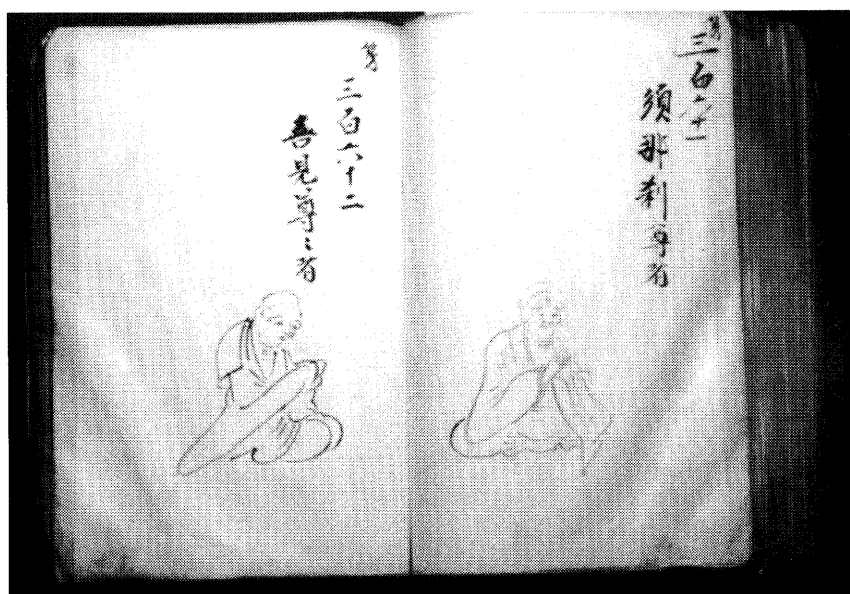 第三百六十一
須那刹尊者
第三百六十二
喜見尊者